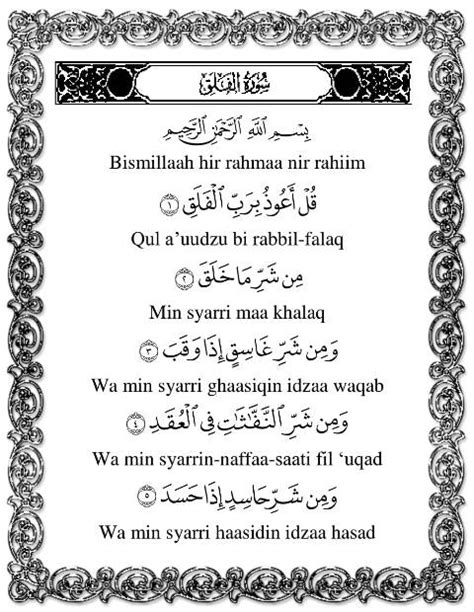 سُورَةُ الْفَلَقِ
بِسْمِ اللَّهِ الرَّحْمَٰنِ الرَّحِيمِ
Bismillaah hir rahmaa nir rahiim
قُلْ أَعُوذُ بِرَبِّ الْفَلَقِ ١
Qul a’uudzu bi rabbil-falaq
مِن شَرِّ مَا خَلَقَ ٢
Min syarri maa khalaq
وَمِن شَرِّ غَاسِقٍ إِذَا وَقَبَ ٣
Wa min syarri ghaasiqin idzaa waqab
وَمِن شَرِّ النَّفَّٰثَٰتِ فِي الْعُقَدِ ٤
Wa min syarrin-naffaa-saati fil ‘uqad
وَمِن شَرِّ حَاسِدٍ إِذَا حَسَدَ ٥
Wa min syarri haasidin idzaa hasad